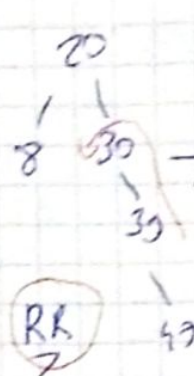 20
8 30
39
RR 49